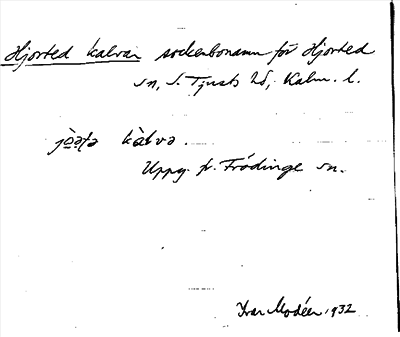 Hjorted kalvar sockenbonamn för Hjorted
sn, S. Tjusts hd, Kalm. l.
kàlvə.
Uppg. fr. Frödinge sn.
Ivar Modéer 1932